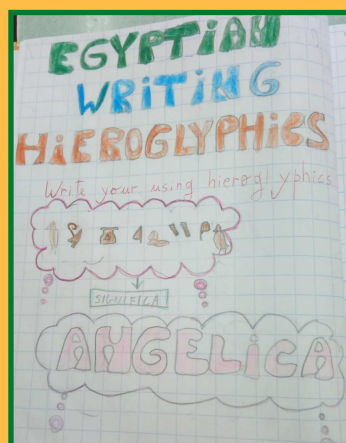 EGYPTiAN
WRiTiNG
HiEROGLYPHiCS
Write your using hieroglyphics
SIGNIFICA
ANGELiCA